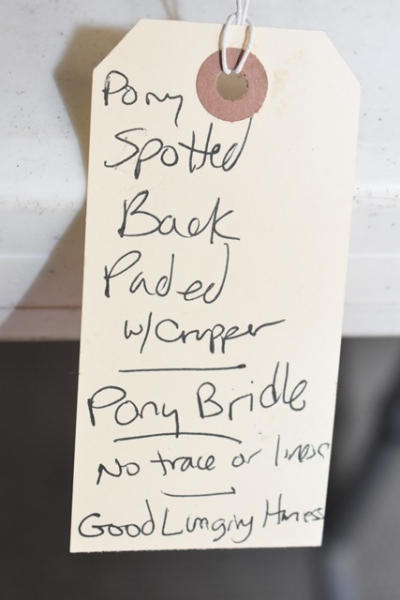 Pony
Spotted
Back
Paded
w/Crupper
Pony Bridle
No trace or lines
Good Lunging Harness